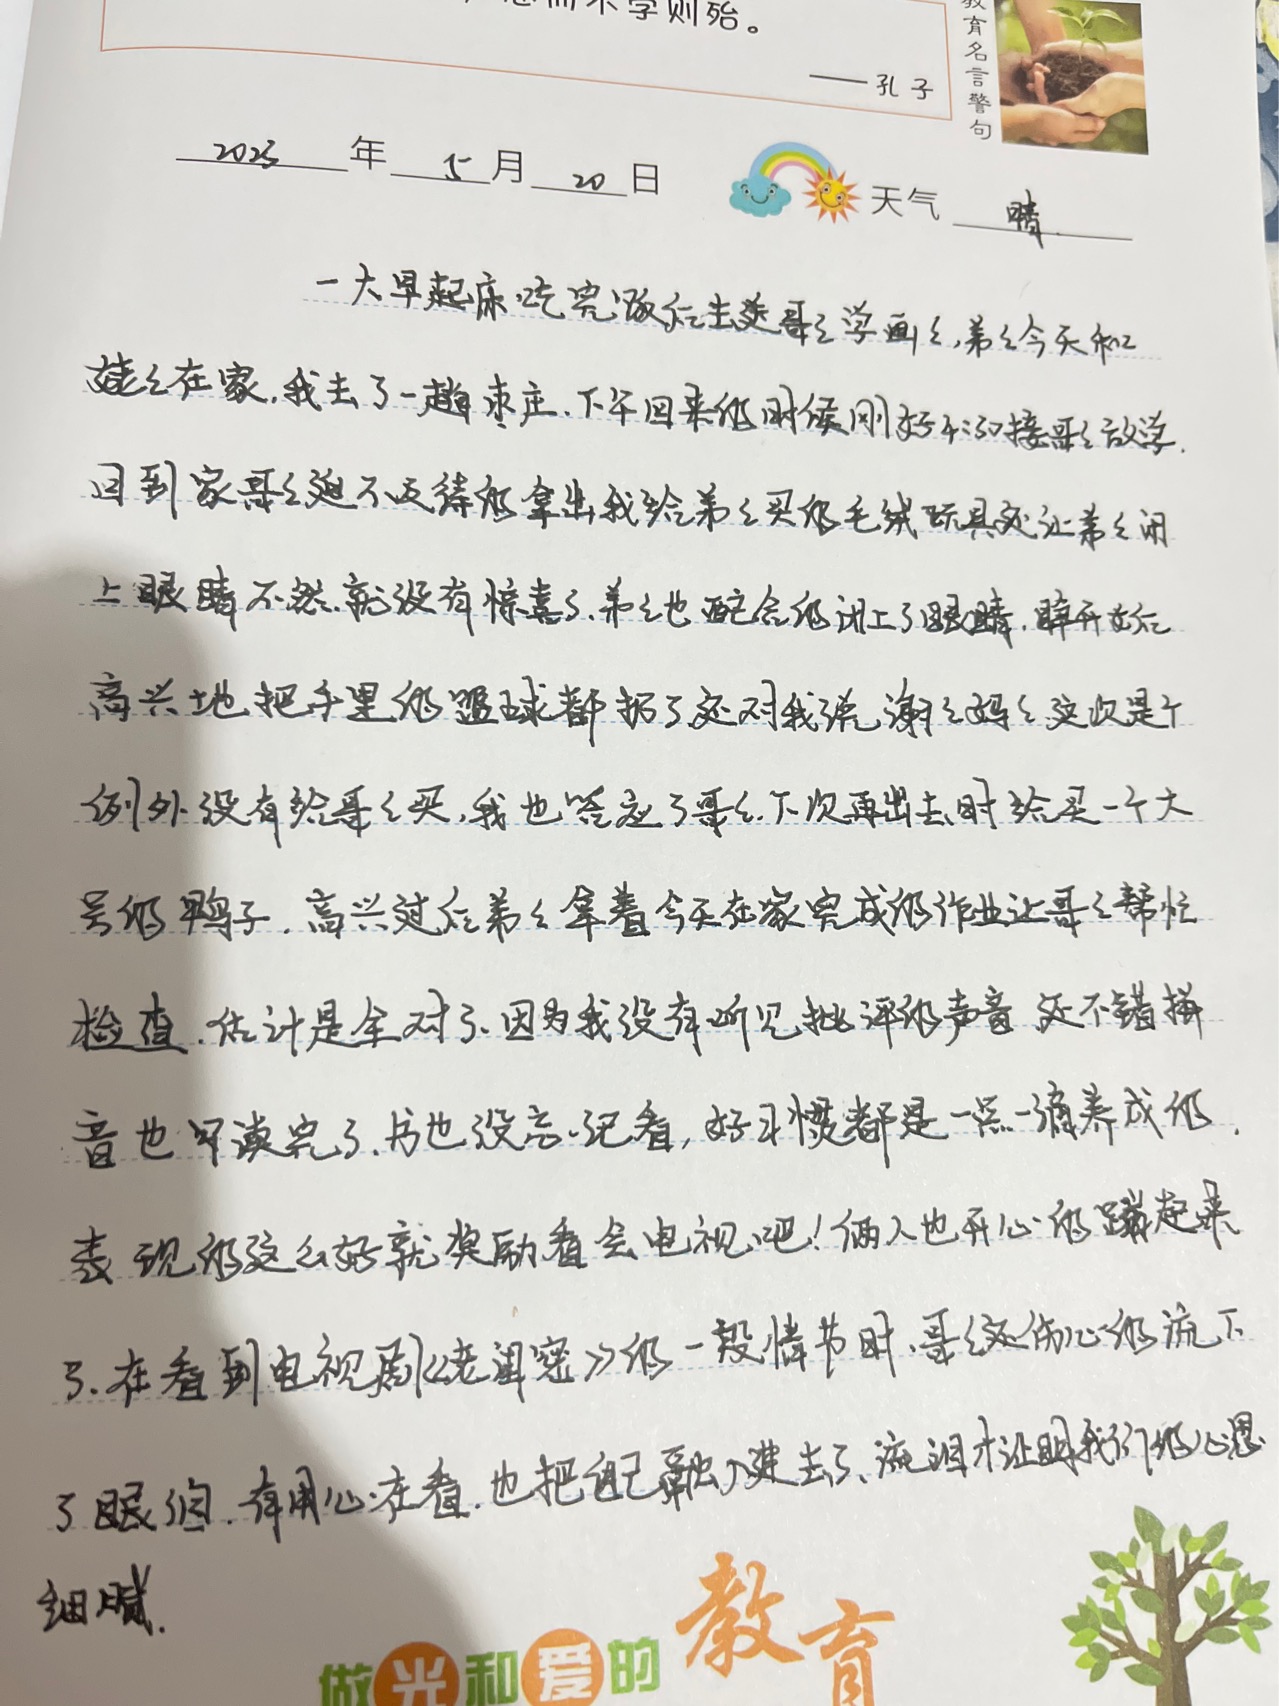 思而不学则殆。
——孔子
教育名言警句
2023年5月20日 天气 晴
一大早起床.吃完饭后送哥哥学画画,弟弟今天和
娃娃在家.我去了一趟枣庄.下午回来的时候刚好不误接哥哥放学.
回到家哥哥迫不及待的拿出我给弟弟买的毛绒玩具还让弟弟闭
上眼睛不然就没有惊喜了.弟弟也配合的闭上了眼睛.睁开之后
高兴地把手里的篮球都扔了还对我说谢谢妈妈这次是个
例外没有给哥哥买.我也答应了哥哥.下次再出去时给买一个大
号的鸭子.高兴过后弟弟拿着今天在家完成的作业让哥哥帮忙
检查.估计是全对了.因为我没有听见批评的声音还不错拼
音也早读完了.书也没忘记看,好习惯都是一点一滴养成的.
表现的这么好就奖励看会电视吧!俩人也开心的蹦起来
了.在看到电视剧《老闺蜜》的一段情节时.哥哥还伤心的流下
了眼泪.有用心在看.也把自己融入进去了.流泪才证明我们的心思
细腻.
做光和爱的教育